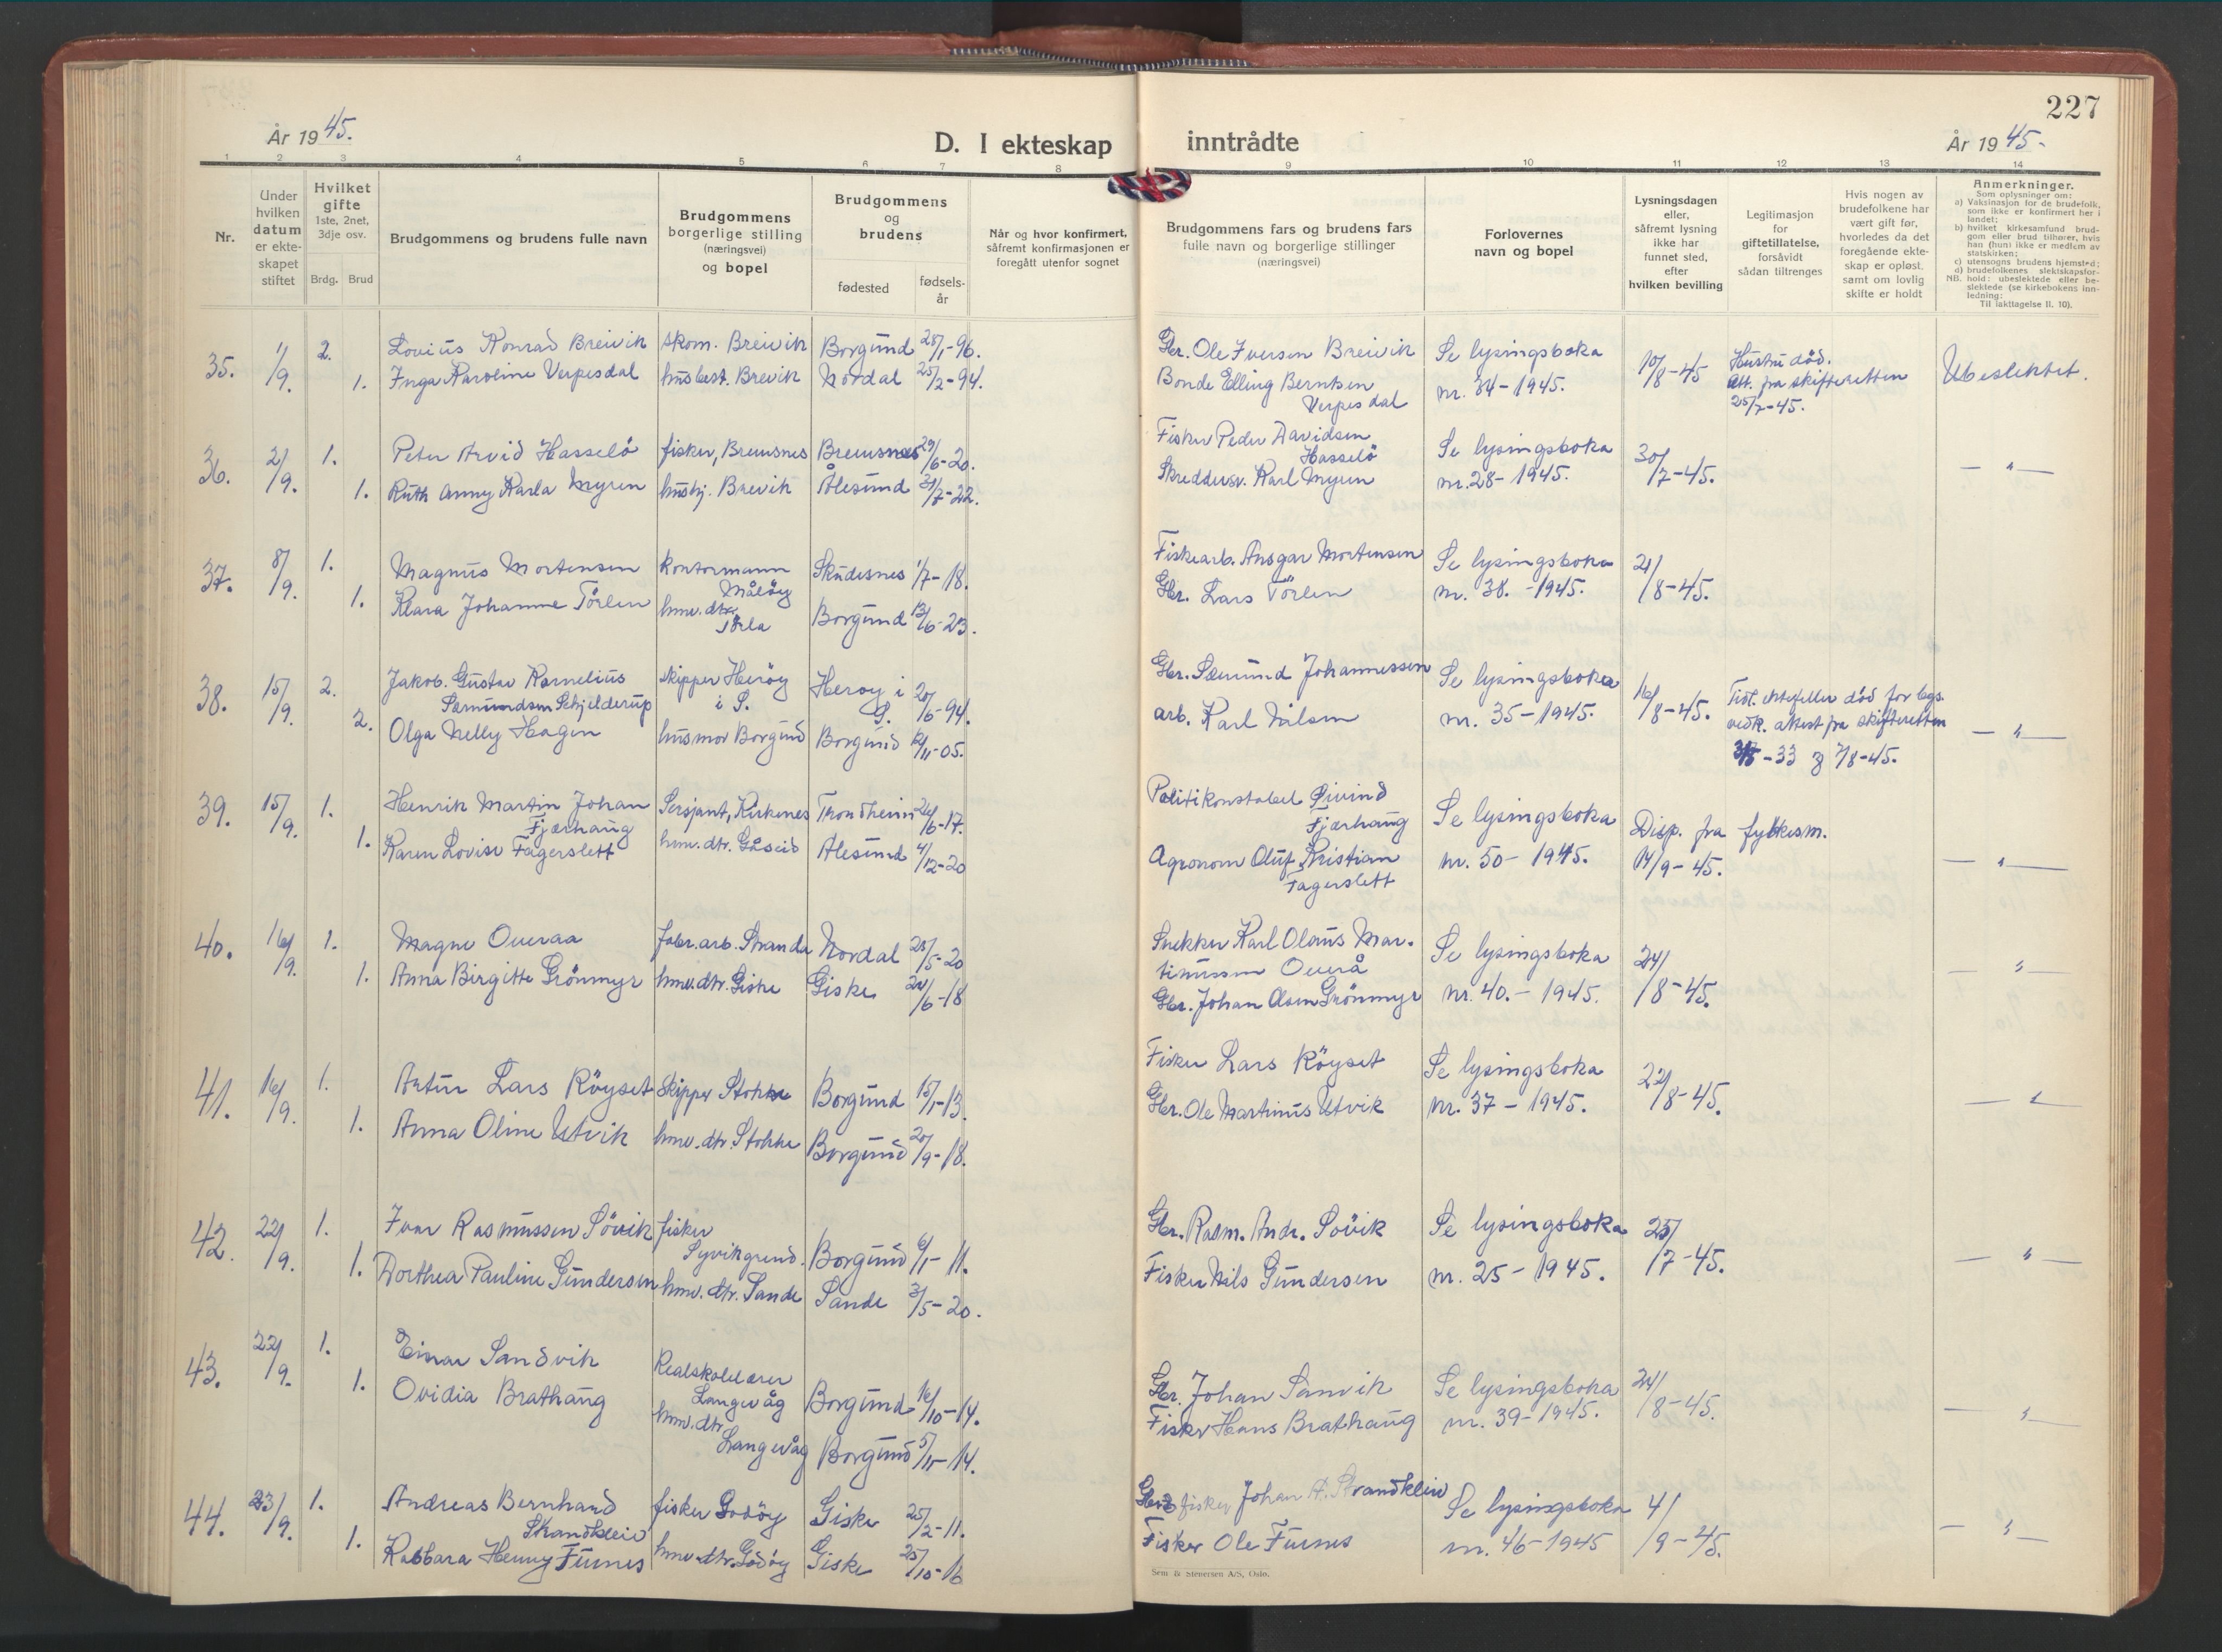 227
År 1945.
D. I ekteskap inntrådte
År 1945.
1 2 3 4 5 6 7 8 9 10 11 12 13 14
Nr.
Under hvilken datum er ekteskapet stiftet
Hvilket gifte 1ste, 2net, 3dje osv.
Brdg. Brud
Brudgommens og brudens fulle navn
Brudgommens borgerlige stilling (næringsvei) og bopel
Brudgommens og brudens
fødested
fødsels-år
Når og hvor konfirmert, såfremt konfirmasjonen er foregått utenfor sognet
Brudgommens fars og brudens fars fulle navn og borgerlige stillinger (næringsvei)
Forlovernes navn og bopel
Lysningsdagen eller, såfremt lysning ikke har funnet sted, efter hvilken bevilling
Legitimasjon for giftetillatelse, forsåvidt sådan tiltrenges
Hvis nogen av brudefolkene har vært gift før, hvorledes da det foregående ekteskap er opløst, samt om lovlig skifte er holdt
Anmerkninger.
Som oplysninger om:
a) Vaksinasjon for de brudefolk, som ikke er konfirmert her i landet;
b) hvilket kirkesamfund brudgom eller brud tilhører, hvis han (hun) ikke er medlem av statskirken;
c) utensogns brudens hjemsted;
d) brudefolkenes slektskapsforhold: ubeslektede eller beslektede (se kirkebokens innledning:
NB. Til iakttagelse II. 10).
35. 1/9. 2. Lovius Konrad Breivik skom. Breivik Borgund 28/1-96. Gbr. Ole Iversen Breivik Se lysingsboka 10/8-45 Hustru död. Ubeslektet.
1. Inga Karoline Verpesdal husbest. Brevik Nordal 25/2-94. Bonde Elling Berntsen Verpesdal nr. 34-1945. Att. fra skifteretten 25/7-45.
36. 2/9. 1. Peter Arvid Hasselö fisker, Bremsnes Bremsnes 29/6-20. Fisker Peder Davidsen Hasselö Se lysingsboka 30/7-45. — " —
1. Ruth Anny Karla Myren hushj. Brevik Ålesund 31/7-22. Skreddersv. Karl Myren nr. 28-1945.
37. 8/9. 1. Magnus Mortensen kontormann Måløy Skudesnes 1/7-18. Fiskearb. Ansgar Mortensen Se lysingsboka 21/8-45.
1. Klara Johanne Törlen hmv. dtr. Törla Borgund 13/6-23. Gbr. Lars Törlen nr. 38.-1945.
38. 15/9. 2. Jakob Gustav Kornelius Sæmundsen Schjelderup skipper Heröy i S. Heroy i S. 20/6-94. Gbr. Sæmund Johannessen Se lysingsboka 16/8-45. Tidl. ektefeller död for begs. vedk. attest fra skifteretten — " —
2. Olga Nelly Hagen husmor Borgund Borgund 12/11-05. arb. Karl Nilsen nr. 35-1945. -33 & 7/8-45.
39. 15/9. 1. Henrik Martin Johan Fjærhaug Sersjant, Kirkenes Trondheim 26/6-17. Politikonstabel Øivind Fjærhaug Se lysingsboka Disp. fra fylkesm. — " —
1. Karen Lovise Fagerslett hmv. dtr. Gåseid Ålesund 4/12-20 Agronom Oluf Kristian Fagerslett nr. 50-1945. 14/9-45.
40. 16/9. 1. Magne Overaa fabr. arb. Stranda Nordal 28/5-20 Snekker Karl Olaus Martinussen Overå Se lysingsboka 24/8-45. — " —
1. Anna Birgitte Grönmyr hmv. dtr. Giske Giske 24/6-18 Gbr. Johan Olsen Grönmyr nr. 40.-1945.
41. 16/9. 1. Artur Lars Röyset Skipper Stokke Borgund 15/1-13. Fisker Lars Röyset Se lysingsboka 22/8-45. — " —
1. Anna Oline Utvik hmv. dtr. Stokke Borgund 20/9-18. Gbr. Ole Martinus Utvik nr. 37-1945.
42. 22/9. 1. Ivar Rasmussen Sövik fisker Syvikgrend. Borgund 6/1-11. Gbr. Rasm. Andr. Sövik Se lysingsboka 25/7-45. — " —
1. Dorthea Pauline Gundersen hmv. dtr. Sande Sande 3/5-20. Fisker Nils Gundersen nr. 25-1945.
43. 22/9. 1. Einar Sandvik Realskolelærer Langevåg Borgund 16/10-14. Gbr. Johan Sanvik Se lysingsboka 24/8-45. — " —
1. Ovidia Brathaug hmv. dtr. Langevåg Borgund 5/11-14. Fisker Hans Brathaug nr. 39-1945.
44. 23/9. 1. Andreas Bernhard Strandkleiv fisker Godöy Giske 25/2-11. Gbr & fisker Johan A. Strandkleiv Se lysingsboka 4/9-45. — " —
1. Rabbara Henny Furnes hmv. dtr. Godöy Giske 25/10-16 Fisker Ole Furnes nr. 46-1945
Sem & Stenersen A/S, Oslo.